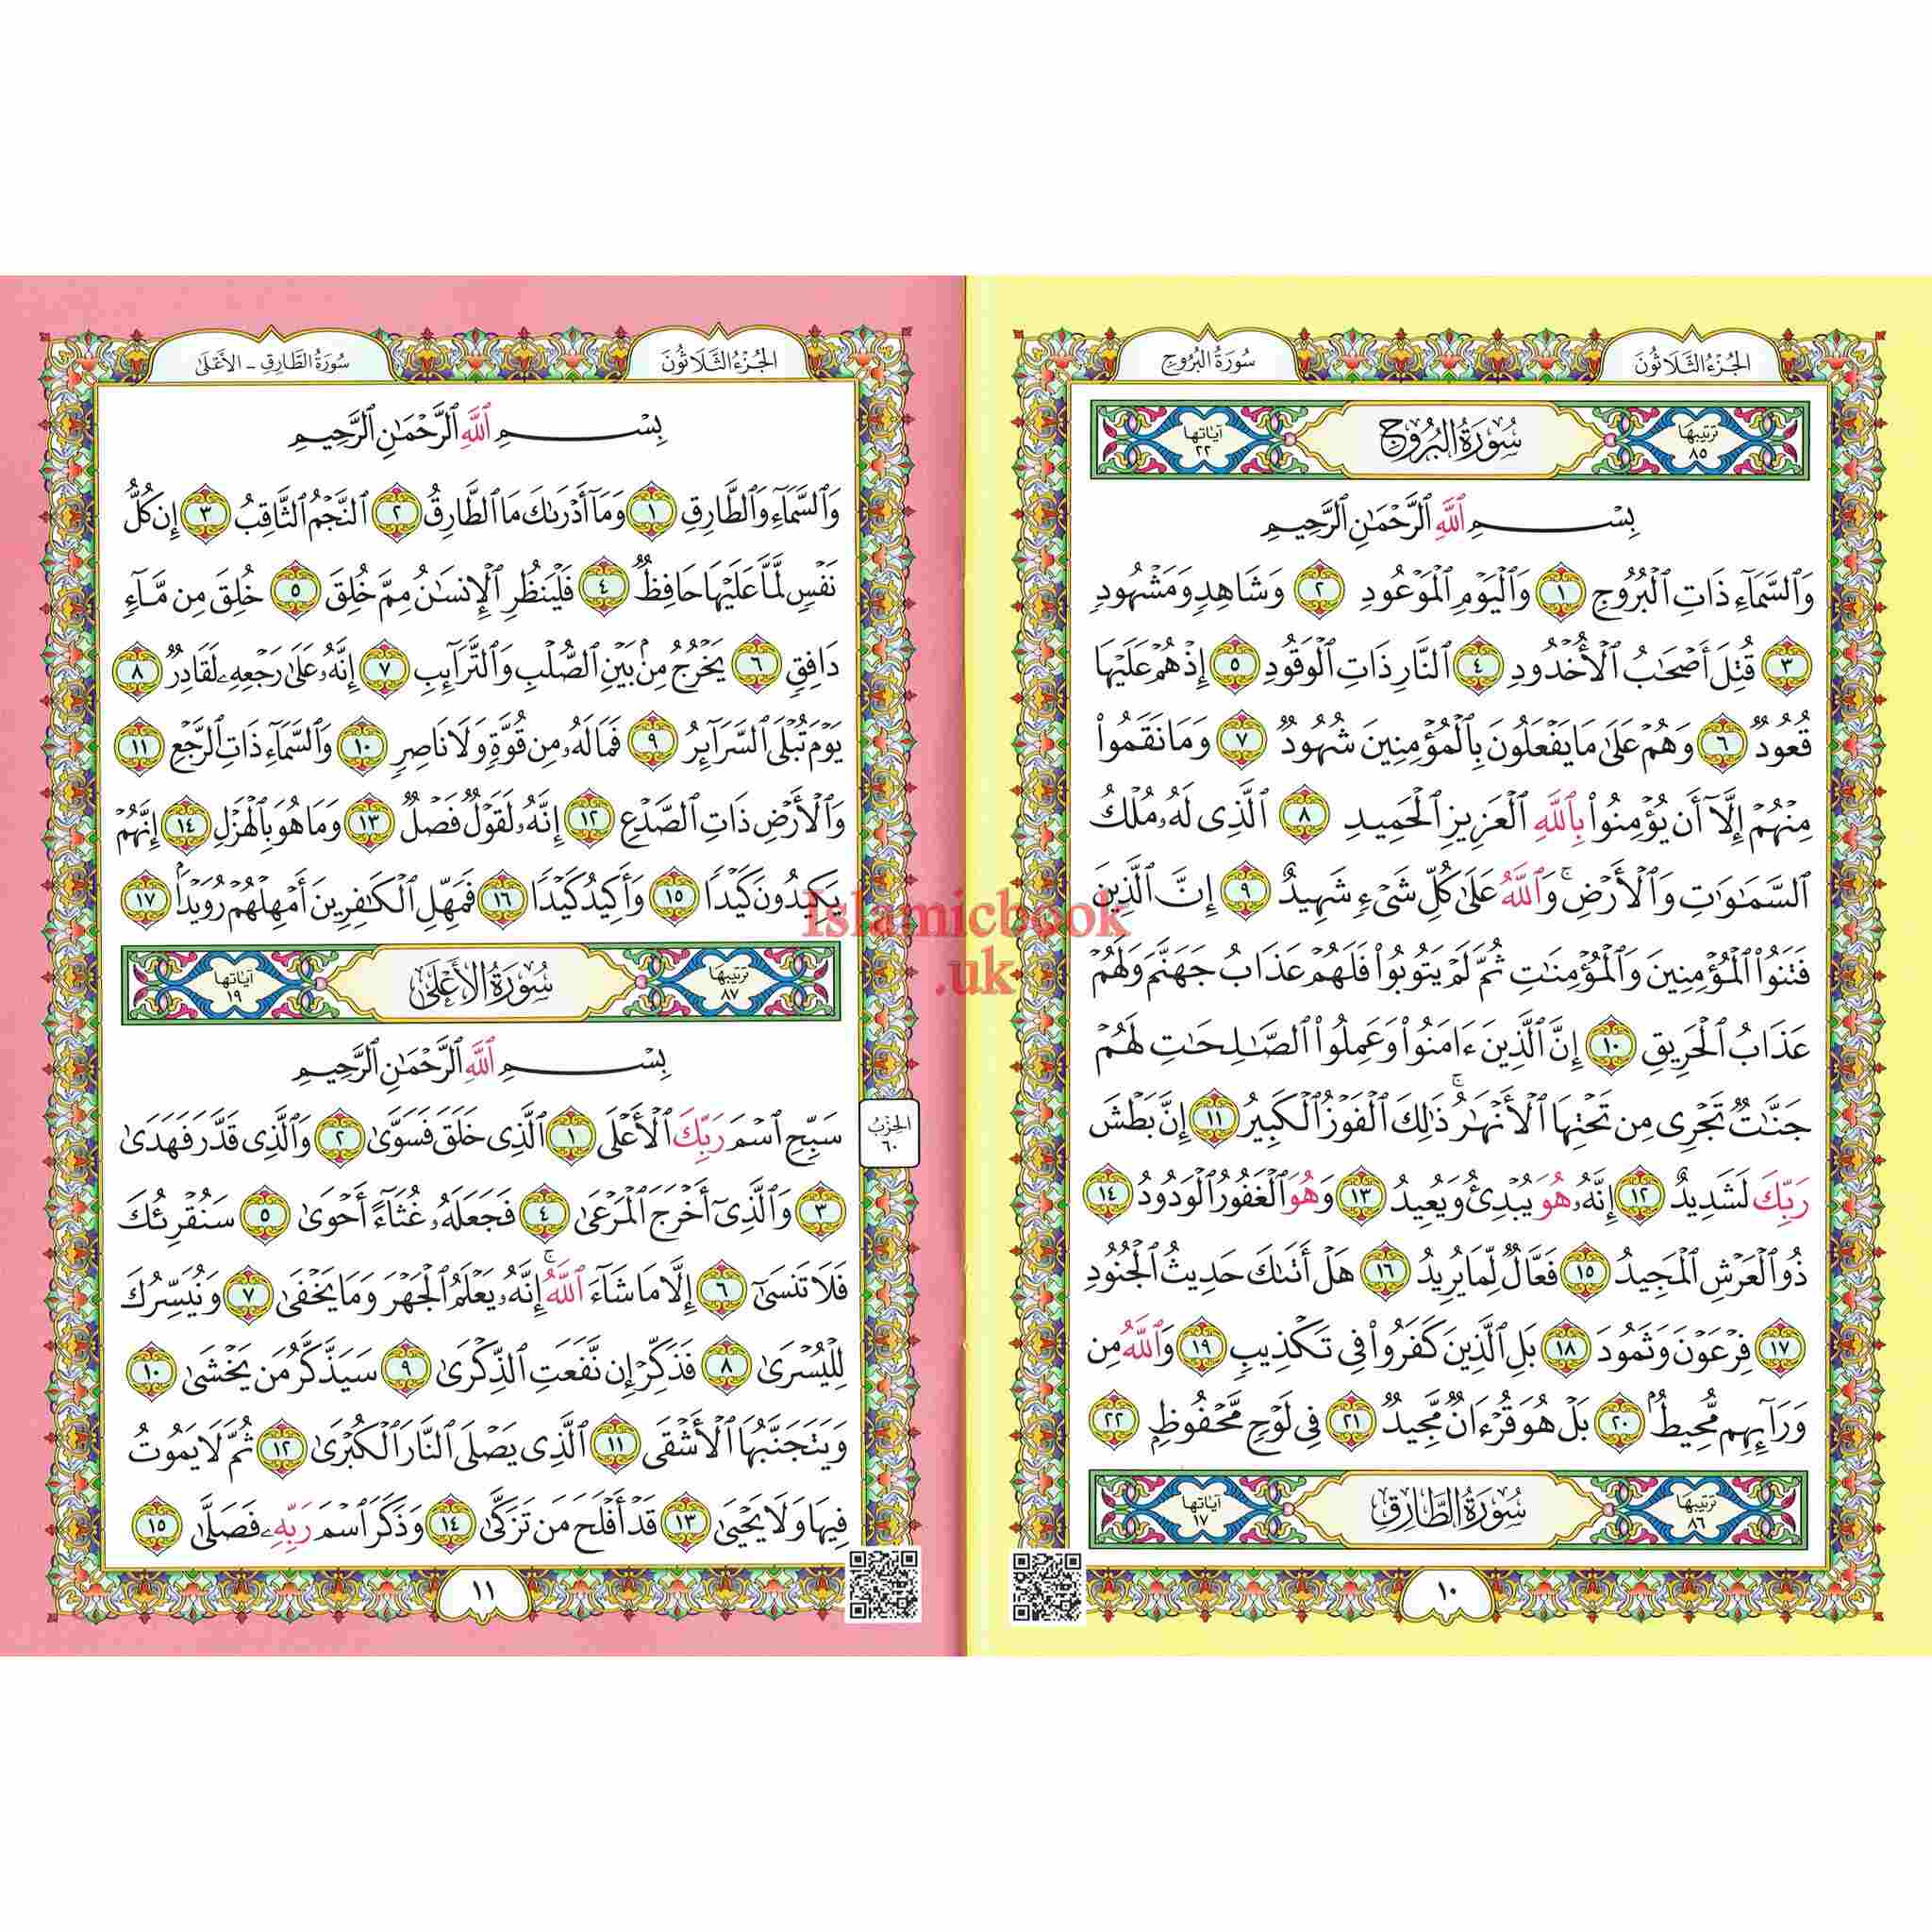 الجُزْءُ الثَّلَاثُونَ
سُورَةُ البُرُوجِ
ترتيبها ٨٥
سُورَةُ البُرُوجِ
آياتها ٢٢
بِسْمِ ٱللَّهِ ٱلرَّحْمَٰنِ ٱلرَّحِيمِ
وَٱلسَّمَآءِ ذَاتِ ٱلْبُرُوجِ ١ وَٱلْيَوْمِ ٱلْمَوْعُودِ ٢ وَشَاهِدٍ وَمَشْهُودٍ
٣ قُتِلَ أَصْحَٰبُ ٱلْأُخْدُودِ ٤ ٱلنَّارِ ذَاتِ ٱلْوَقُودِ ٥ إِذْ هُمْ عَلَيْهَا
قُعُودٌ ٦ وَهُمْ عَلَىٰ مَا يَفْعَلُونَ بِٱلْمُؤْمِنِينَ شُهُودٌ ٧ وَمَا نَقَمُوا۟
مِنْهُمْ إِلَّآ أَن يُؤْمِنُوا۟ بِٱللَّهِ ٱلْعَزِيزِ ٱلْحَمِيدِ ٨ ٱلَّذِى لَهُۥ مُلْكُ
ٱلسَّمَٰوَٰتِ وَٱلْأَرْضِ ۚ وَٱللَّهُ عَلَىٰ كُلِّ شَىْءٍ شَهِيدٌ ٩ إِنَّ ٱلَّذِينَ
فَتَنُوا۟ ٱلْمُؤْمِنِينَ وَٱلْمُؤْمِنَٰتِ ثُمَّ لَمْ يَتُوبُوا۟ فَلَهُمْ عَذَابُ جَهَنَّمَ وَلَهُمْ
عَذَابُ ٱلْحَرِيقِ ١٠ إِنَّ ٱلَّذِينَ ءَامَنُوا۟ وَعَمِلُوا۟ ٱلصَّٰلِحَٰتِ لَهُمْ
جَنَّٰتٌ تَجْرِى مِن تَحْتِهَا ٱلْأَنْهَٰرُ ۚ ذَٰلِكَ ٱلْفَوْزُ ٱلْكَبِيرُ ١١ إِنَّ بَطْشَ
رَبِّكَ لَشَدِيدٌ ١٢ إِنَّهُۥ هُوَ يُبْدِئُ وَيُعِيدُ ١٣ وَهُوَ ٱلْغَفُورُ ٱلْوَدُودُ ١٤
ذُو ٱلْعَرْشِ ٱلْمَجِيدُ ١٥ فَعَّالٌ لِّمَا يُرِيدُ ١٦ هَلْ أَتَىٰكَ حَدِيثُ ٱلْجُنُودِ
١٧ فِرْعَوْنَ وَثَمُودَ ١٨ بَلِ ٱلَّذِينَ كَفَرُوا۟ فِى تَكْذِيبٍ ١٩ وَٱللَّهُ مِن
وَرَآئِهِم مُّحِيطٌۢ ٢٠ بَلْ هُوَ قُرْءَانٌ مَّجِيدٌ ٢١ فِى لَوْحٍ مَّحْفُوظٍۭ ٢٢
ترتيبها ٨٦
سُورَةُ الطَّارِقِ
آياتها ١٧
١٠
الجُزْءُ الثَّلَاثُونَ
سُورَةُ الطَّارِقِ - الأَعْلَىٰ
بِسْمِ ٱللَّهِ ٱلرَّحْمَٰنِ ٱلرَّحِيمِ
وَٱلسَّمَآءِ وَٱلطَّارِقِ ١ وَمَآ أَدْرَىٰكَ مَا ٱلطَّارِقُ ٢ ٱلنَّجْمُ ٱلثَّاقِبُ ٣ إِن كُلُّ
نَفْسٍ لَّمَّا عَلَيْهَا حَافِظٌ ٤ فَلْيَنظُرِ ٱلْإِنسَٰنُ مِمَّ خُلِقَ ٥ خُلِقَ مِن مَّآءٍ
دَافِقٍ ٦ يَخْرُجُ مِنۢ بَيْنِ ٱلصُّلْبِ وَٱلتَّرَآئِبِ ٧ إِنَّهُۥ عَلَىٰ رَجْعِهِۦ لَقَادِرٌ ٨
يَوْمَ تُبْلَى ٱلسَّرَآئِرُ ٩ فَمَا لَهُۥ مِن قُوَّةٍ وَلَا نَاصِرٍ ١٠ وَٱلسَّمَآءِ ذَاتِ ٱلرَّجْعِ ١١
وَٱلْأَرْضِ ذَاتِ ٱلصَّدْعِ ١٢ إِنَّهُۥ لَقَوْلٌ فَصْلٌ ١٣ وَمَا هُوَ بِٱلْهَزْلِ ١٤ إِنَّهُمْ
يَكِيدُونَ كَيْدًا ١٥ وَأَكِيدُ كَيْدًا ١٦ فَمَهِّلِ ٱلْكَٰفِرِينَ أَمْهِلْهُمْ رُوَيْدًۢا ١٧
ترتيبها ٨٧
سُورَةُ الأَعْلَىٰ
آياتها ١٩
بِسْمِ ٱللَّهِ ٱلرَّحْمَٰنِ ٱلرَّحِيمِ
الحِزْبُ ٦٠
سَبِّحِ ٱسْمَ رَبِّكَ ٱلْأَعْلَى ١ ٱلَّذِى خَلَقَ فَسَوَّىٰ ٢ وَٱلَّذِى قَدَّرَ فَهَدَىٰ
٣ وَٱلَّذِىٓ أَخْرَجَ ٱلْمَرْعَىٰ ٤ فَجَعَلَهُۥ غُثَآءً أَحْوَىٰ ٥ سَنُقْرِئُكَ
فَلَا تَنسَىٰٓ ٦ إِلَّا مَا شَآءَ ٱللَّهُ ۚ إِنَّهُۥ يَعْلَمُ ٱلْجَهْرَ وَمَا يَخْفَىٰ ٧ وَنُيَسِّرُكَ
لِلْيُسْرَىٰ ٨ فَذَكِّرْ إِن نَّفَعَتِ ٱلذِّكْرَىٰ ٩ سَيَذَّكَّرُ مَن يَخْشَىٰ ١٠
وَيَتَجَنَّبُهَا ٱلْأَشْقَى ١١ ٱلَّذِى يَصْلَى ٱلنَّارَ ٱلْكُبْرَىٰ ١٢ ثُمَّ لَا يَمُوتُ
فِيهَا وَلَا يَحْيَىٰ ١٣ قَدْ أَفْلَحَ مَن تَزَكَّىٰ ١٤ وَذَكَرَ ٱسْمَ رَبِّهِۦ فَصَلَّىٰ ١٥
١١
Islamicbook
.uk